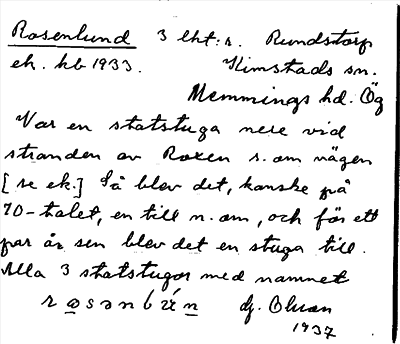 Rosenlund 3 lht:r. Rundstorp
ek. kb 1933. Kimstads sn.
Memmings hd. Ög
Var en statstuga nere vid
stranden av Roxen s. om vägen
[se ek.] Så blev det, kanske på
70-talet, en till n. om, och för ett
par år sen blev det en stuga till.
Alla 3 statstugor med namnet
dj. Olsson
1937